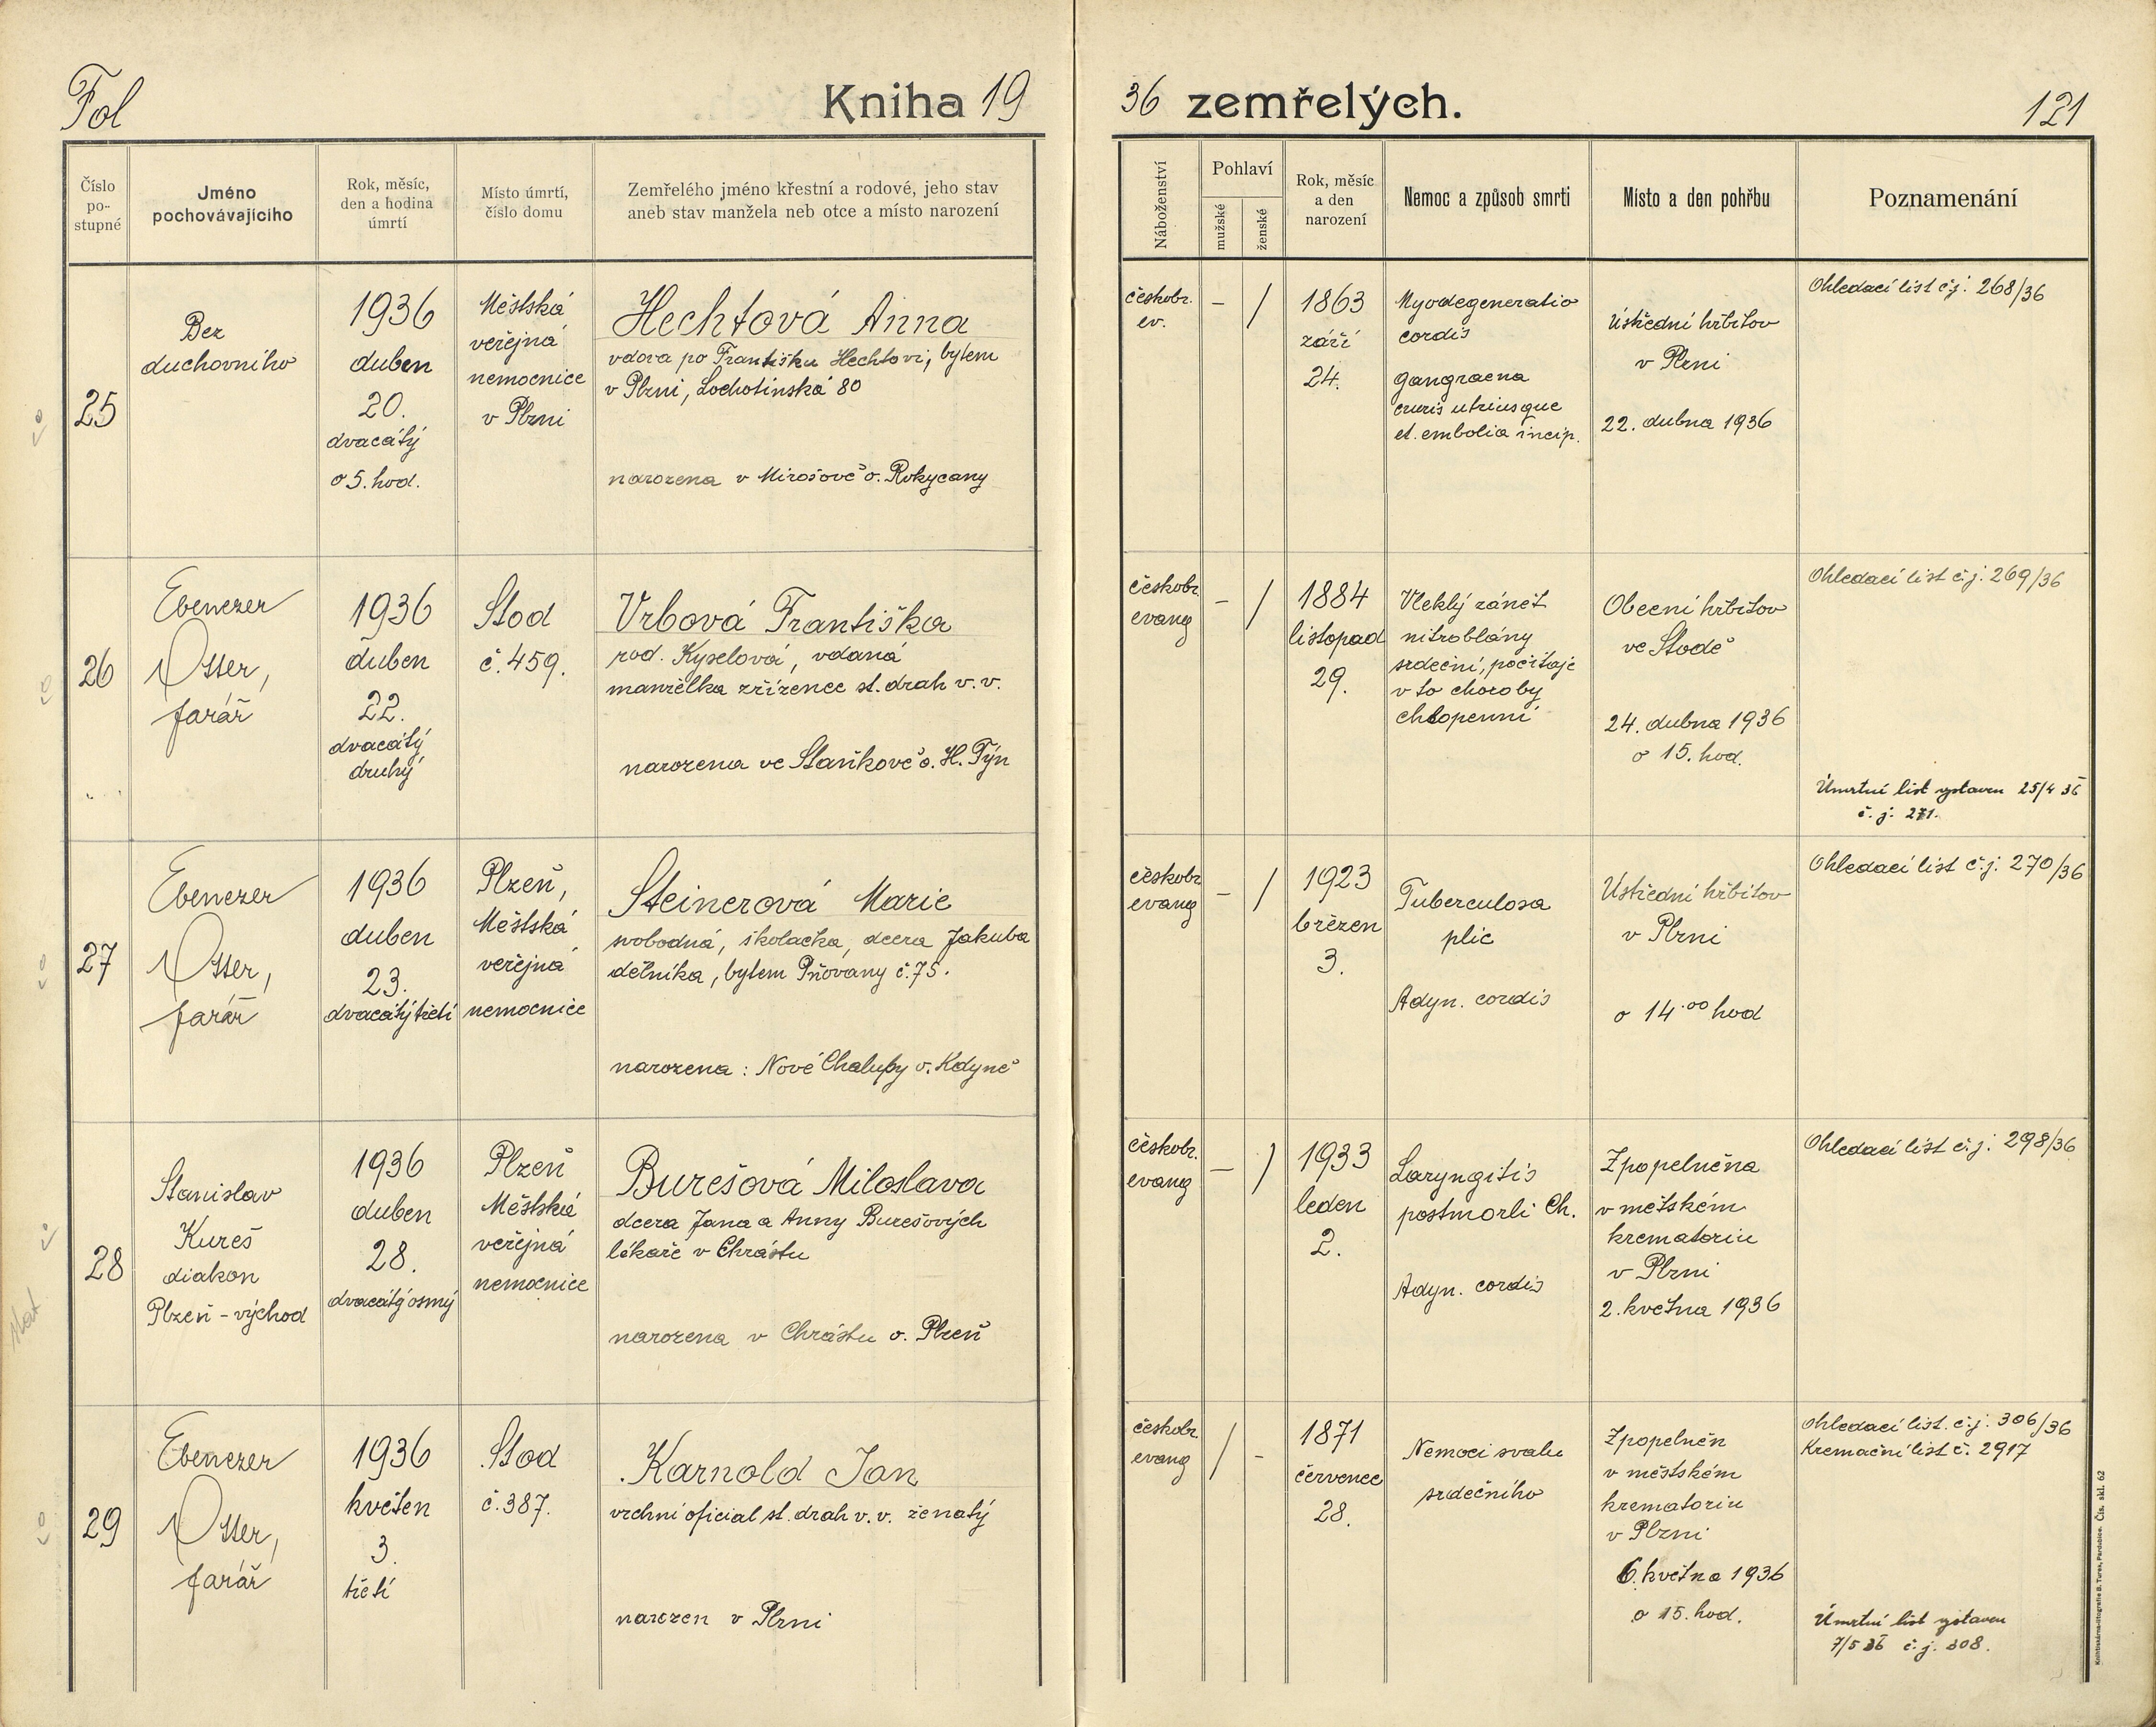 Fol
Kniha 19
36 zemřelých.
121
Číslo
po-
stupné
Jméno
pochovávajícího
Rok, měsíc,
den a hodina
úmrtí
Místo úmrtí,
číslo domu
Zemřelého jméno křestní a rodové, jeho stav
aneb stav manžela neb otce a místo narození
Náboženství
Pohlaví
mužské
ženské
Rok, měsíc
a den
narození
Nemoc a způsob smrti
Místo a den pohřbu
Poznamenání
25
Bez
duchovního
1936
duben
20.
dvacátý
o 5. hod.
Městská
veřejná
nemocnice
v Plzni
Hechtová Anna
vdova po Františku Hechtovi, bytem
v Plzni, Lochotínská 80
narozena v Mirošově o. Rokycany
českobr.
ev.
- /
1863
září
24.
Myodegeneratio
cordis
gangraena
cruris utriusque
et. embolia incip.
Ústřední hřbitov
v Plzni
22. dubna 1936
Ohledací list čj: 268/36
26
Ebenezer
Otter,
farář
1936
duben
22.
dvacátý
druhý
Stod
č. 459.
Vrbová Františka
rod. Kyselová, vdaná
manželka zřízence st. drah v. v.
narozena ve Staňkově o. H. Týn
českobr.
evang
- /
1884
listopad
29.
Vleklý zánět
nitroblány
srdeční, počítaje
v to choroby
chlopenní
Obecní hřbitov
ve Stodě
24. dubna 1936
o 15. hod.
Ohledací list č.j. 269/36
Úmrtní list vystaven 25/4 36
č. j. 271.
27
Ebenezer
Otter,
farář
1936
duben
23.
dvacátý třetí
Plzeň,
Městská
veřejná
nemocnice
Steinerová Marie
svobodná, školačka, dcera Jakuba
dělníka, bytem Pňovany č. 75.
narozena: Nové Chalupy o. Kdyně
českobr.
evang
- /
1923
březen
3.
Tuberculosa
plic
Adyn. cordis
Ústřední hřbitov
v Plzni
o 14.00 hod
Ohledací list č.j. 270/36
28
Stanislav
Kureš
diakon
Plzeň - východ
1936
duben
28.
dvacátý osmý
Plzeň
Městská
veřejná
nemocnice
Burešová Miloslava
dcera Jana a Anny Burešových
lékaře v Chrástu
narozena v Chrástu o. Plzeň
českobr.
evang
- /
1933
leden
2.
Laryngitis
postmorbi Ch.
Adyn. cordis
Zpopelněna
v městském
krematoriu
v Plzni
2. května 1936
Ohledací list č.j: 298/36
29
Ebenezer
Otter,
farář
1936
květen
3.
třetí
Stod
č. 387.
Karnold Jan
vrchní oficial st. drah v. v. ženatý
narozen v Plzni
českobr.
evang
/ -
1871
červenec
28.
Nemoci svalu
srdečního
Zpopelněn
v městském
krematoriu
v Plzni
6. května 1936
o 15. hod.
Ohledací list. č.j. 306/36
Kremační list č. 2917
Úmrtní list vystaven
7/5 36 č. j. 308.
Knihtiskárna-litografie B. Turs, Pardubice. Čís. skl. 62